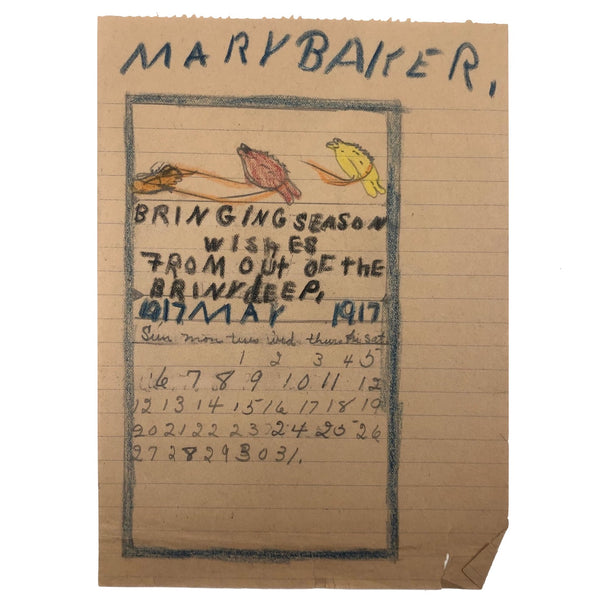 MARY BAKER,
BRINGING SEASON
WISHES
7ROM OUT OF THE
BRINY DEEP,
1917 MAY 1917
Sun mon tues Wed. thurs Fri Sat
1 2 3 4 5
6 7 8 9 10 11 12
12 13 14 15 16 17 18 19
20 21 22 23 24 25 26
27 28 29 30 31.